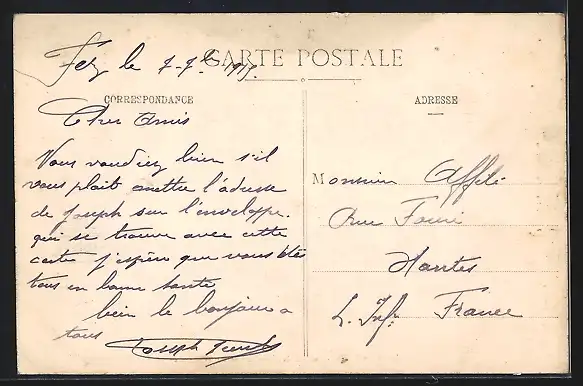 CARTE POSTALE
Fez le 7-7bre 1917.
CORRESPONDANCE
ADRESSE
Cher Amis
Vous voudriez bien s'il
vous plait mettre l'adresse
de Joseph sur l'enveloppe.
qui se trouve avec cette
carte j'espère que vous êtes
tous en bonne santé
bien le bonjour a
tous
Joseph
Monsieur Affilé
Rue
Nantes
L. Infre France